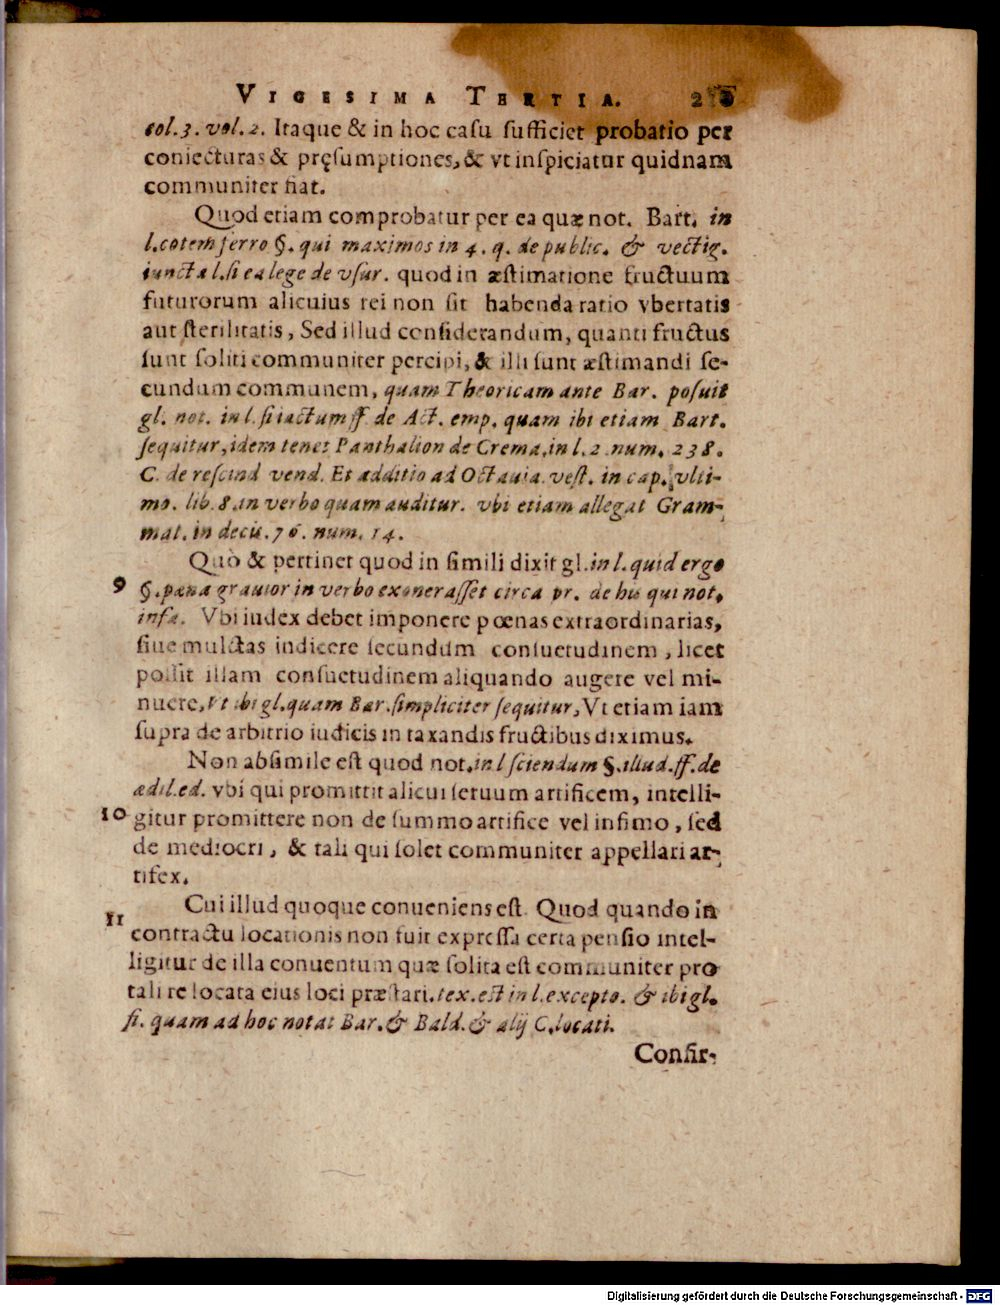 VIGESIMA TERTIA.
col. 3. vol. 2. Itaque & in hoc casu sufficiet probatio per
coniecturas & pręsumptiones, & vt inspiciatur quidnam
communiter fiat.
Quod etiam comprobatur per ea quæ not. Bart. in
l. cotem ferro §. qui maximos in 4. q. de public. & vectig.
iuncta l. si ea lege de vsur. quod in æstimatione fructuum
futurorum alicuius rei non sit habenda ratio vbertatis
aut sterilitatis, Sed illud considerandum, quanti fructus
sunt soliti communiter percipi, & illi sunt æstimandi se-
cundum communem, quam Theoricam ante Bar. posuit
gl. not. in l. si iactum ff. de Act. emp. quam ibi etiam Bart.
sequitur, idem tenet Panthalion de Crema, in l. 2 num. 238.
C. de rescind vend. Et additio ad Octauia. vest. in cap. vlti-
mo. lib. 8. in verbo quam auditur. vbi etiam allegat Gram-
mat. in decis. 76. num. 14.
Quò & pertinet quod in simili dixit gl. in l. quid ergo
9 §. pæna grauior in verbo exonerasset circa pr. de his qui not.
infa. Vbi iudex debet imponere pœnas extraordinarias,
siue mulctas indicere secundum consuetudinem, licet
possit illam consuetudinem aliquando augere vel mi-
nuere, Vt ibi gl. quam Bar. simpliciter sequitur, Vt etiam iam
supra de arbitrio iudicis in taxandis fructibus diximus.
Non absimile est quod not. in l sciendum §. illud. ff. de
ædil. ed. vbi qui promittit alicui seruum artificem, intelli-
10 gitur promittere non de summo artifice vel infimo, sed
de mediocri, & tali qui solet communiter appellari ar-
tifex.
Cui illud quoque conueniens est. Quod quando in
11 contractu locationis non fuit expressa certa pensio intel-
ligitur de illa conuentum quæ solita est communiter pro
tali re locata eius loci præstari. tex. est in l. excepto. & ibi gl.
fi. quam ad hoc notat Bar. & Bald. & alij C. locati.
Confir-
Digitalisierung gefördert durch die Deutsche Forschungsgemeinschaft - DFG